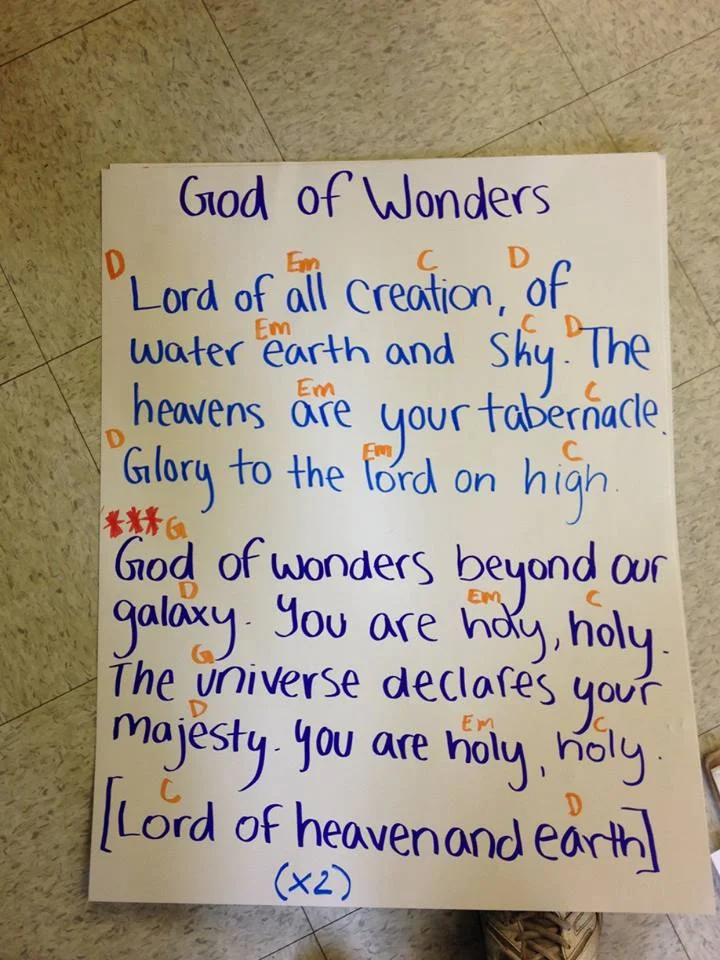 God of Wonders
D Em C D
Lord of all Creation, of
Em C D
water earth and Sky. The
Em C
heavens are your tabernacle.
D Em C
Glory to the lord on high.
*** G
God of wonders beyond our
D Em C
galaxy. You are holy, holy.
G
The universe declares your
D Em C
majesty. you are holy, holy.
C D
[Lord of heaven and earth]
(x2)